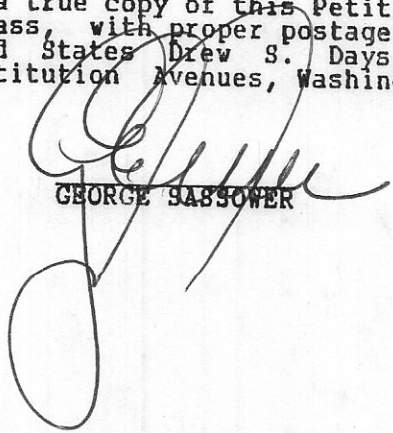 a true copy of this Petit
ass, with proper postage
d States Drew S. Days
titution Avenues, Washin
GEORGE SASSOWER